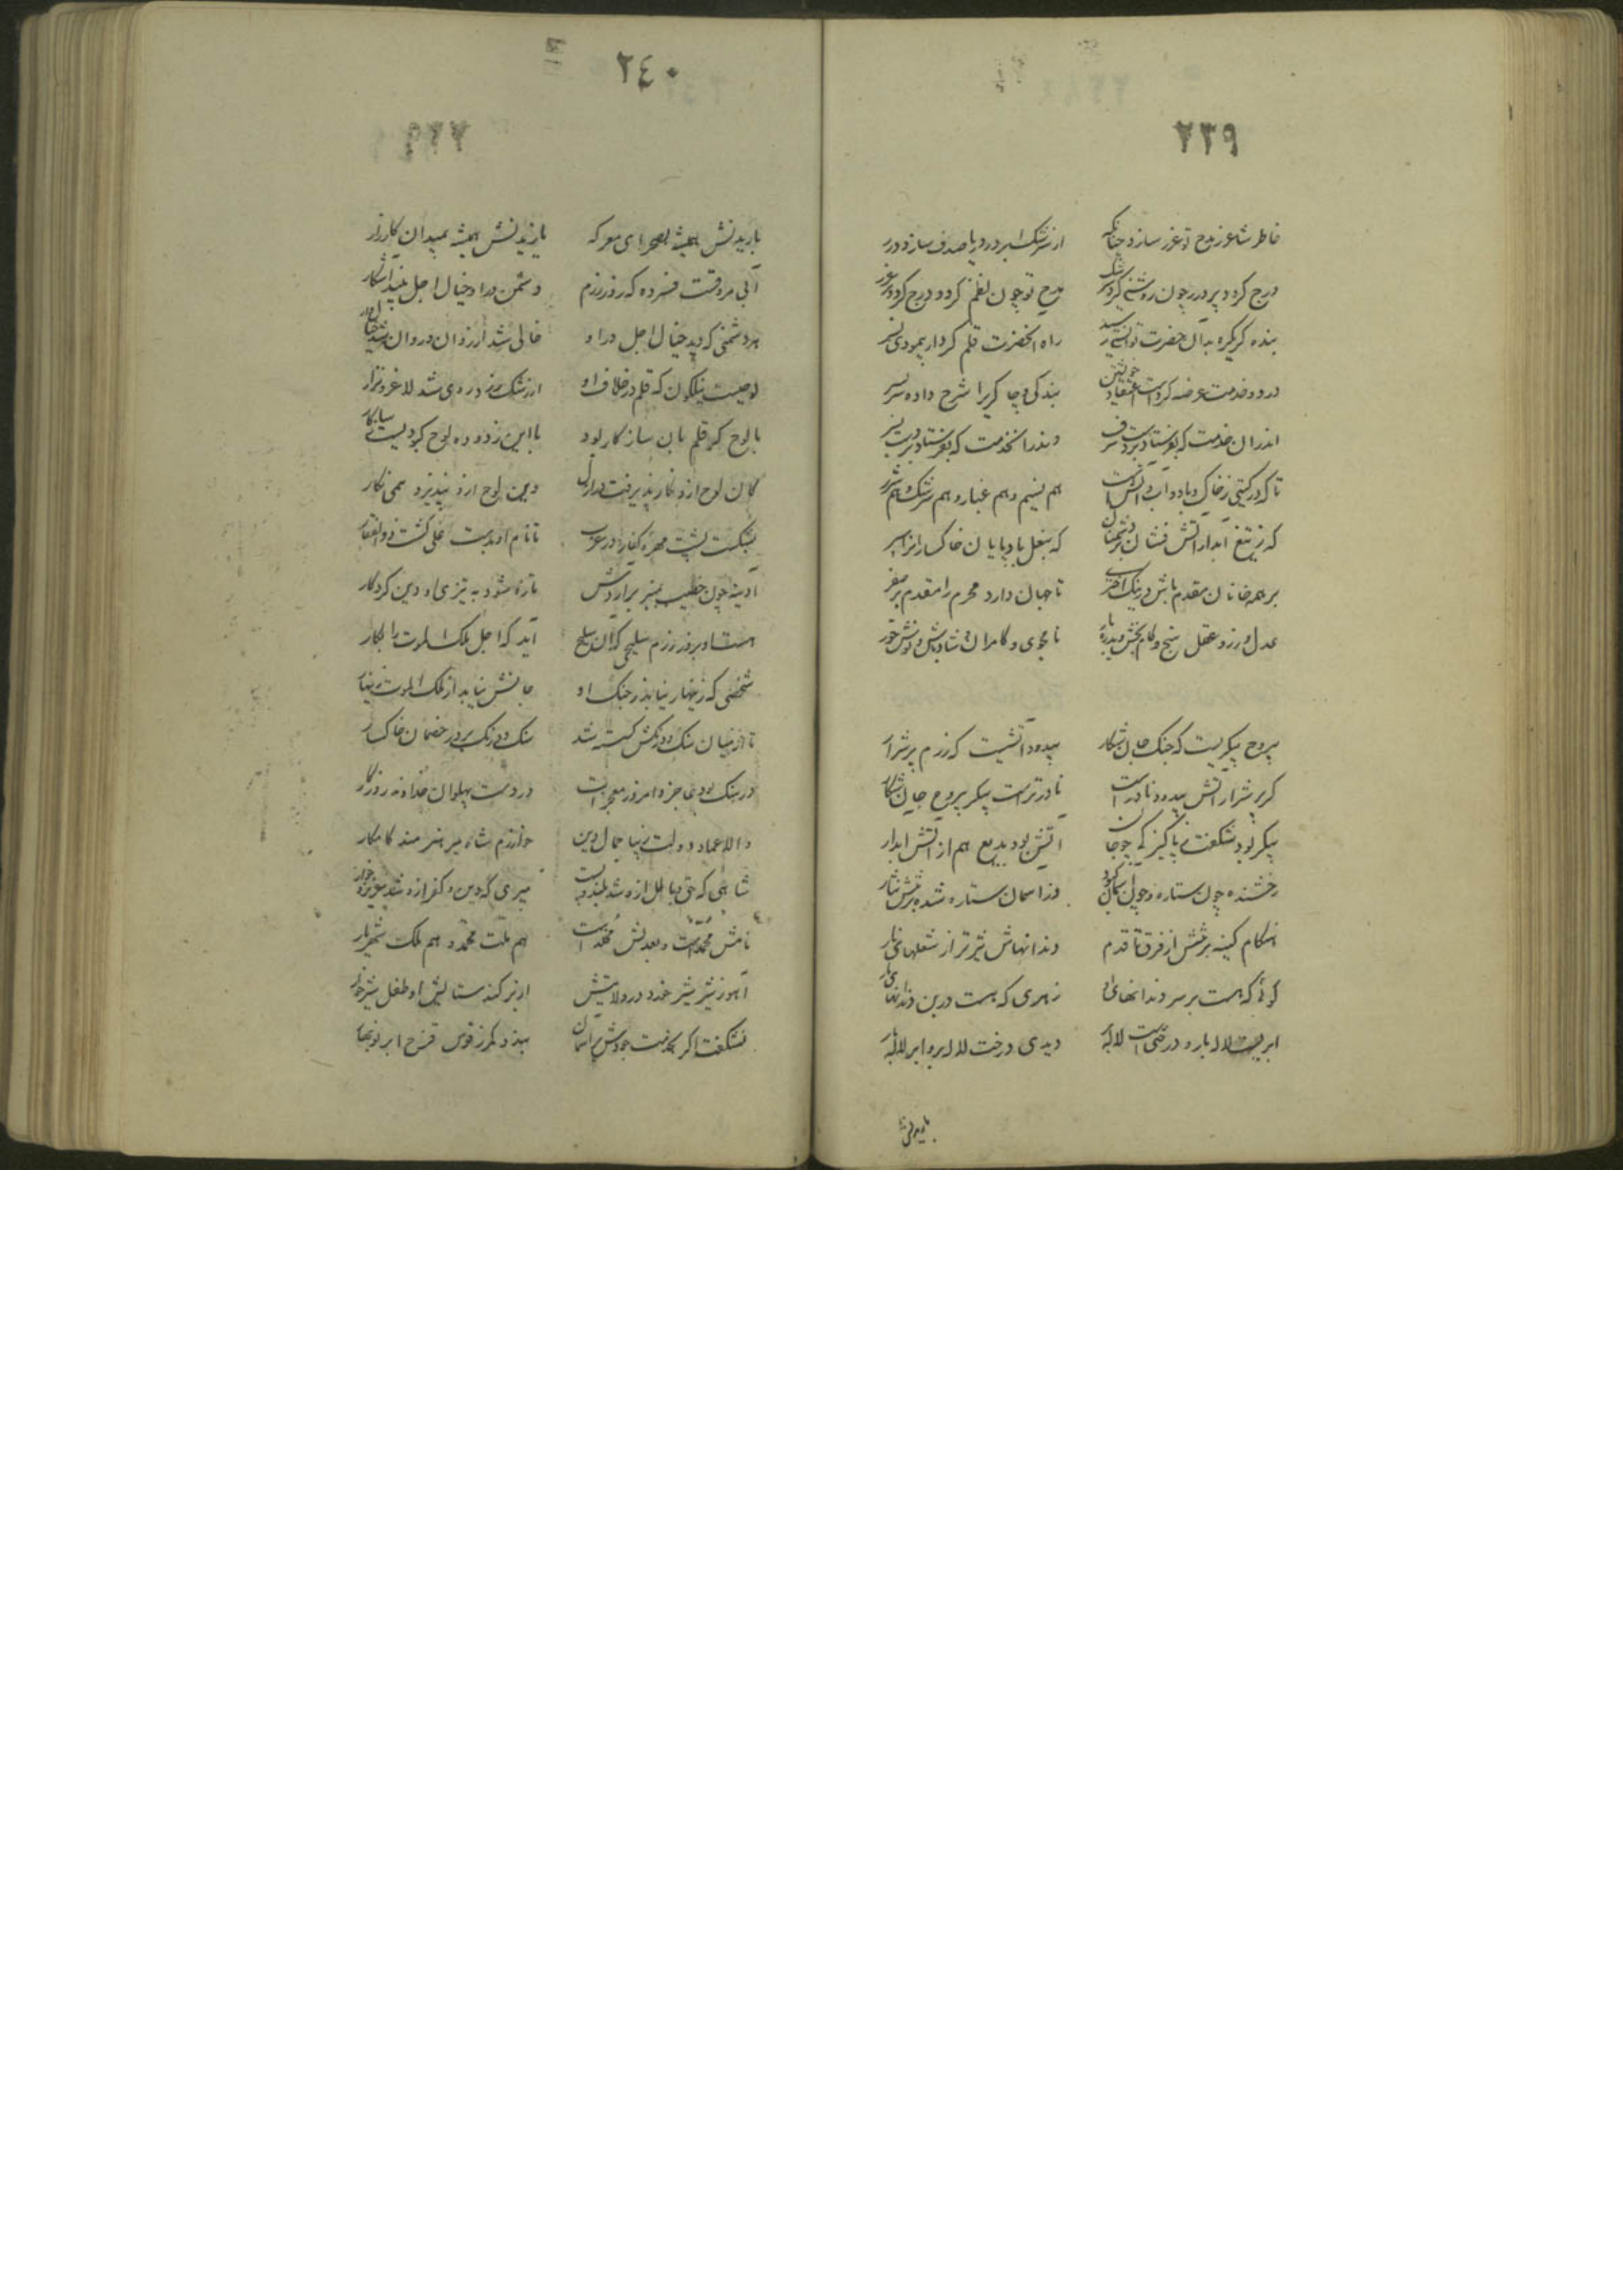 ٢٣٩
خاطر شاعر ز مدح تو غرر سازد چنانکه از سرشک ابر در دریا صدف سازد درر
درج کردد پر درر چون روشنی کرد سرشک مدح تو چون نظم کردد درج کردد پر غرر
بنده کر یکره بدان حضرت توانستی رسید راه آنحضرت قلم کردار پیمودی بسر
درود و خدمت عرضه کردست اعتقاد خویشتن بندکی و چاکری را شرح داده سربسر
اندران خدمت که بفرستاد بردست شرف وندرانخدمت که بفرستاد بردست
تا که در کیتی ز خاک و باد و آب و آتش است هم نسیم و هم غبار و هم سرشک و هم شرر
که ز تیغ آبدار آتش فشان بر دشمنان که بنعل بادپایان خاک
بر همه خانان مقدم باش در نیک اختری تا جهان دارد محرم را مقدم بر صفر
عدل ورز و عقل سنج و کام بخش و نامجوی و کامران و شاد باش و نوش خور
بیروح پیکریست که جنک جان شکار بیدود آتشیست که رزم پر شرار
کر پر شرار آتش بیدود نادر است نادرتر است پیکر بیروح جان شکار
پیکر بود شکفت پاکیزه آتش بود بدیع هم از آتش آبدار
رخشنده چون ستاره و چون آسمان کبود وز آسمان ستاره شده بر تنش نثار
هنکام کینه بر تنش از فرق تا قدم دندانهاش تیزتر از شعلهای نار
کوئی که هست بر سر دندانهای او زهری که هست در بن دندانهای مار
ابریست لاله بار و درختی است لاله بر دیدی درخت لاله بر و ابر لاله بار
باریدنش
٢٤٠
باریدنش همیشه بصحرای معرکه یازیدنش همیشه بمیدان کارزار
آبی مروقست فسرده که روز رزم دشمن درو خیال اجل بیند آشکار
هر دشمنی که دید خیال اجل درو خالی شد از روان و روان شد خیال وار
لوحیست نیلکون که قلم در خلاف او از رشک زرد روی شد لاغر و نزار
با لوح کر قلم بان سازکار بود با این زدوده لوح
کان لوح ازو نکار پذیرفت در ازل وین لوح ازو نپذیرد همی نکار
بشکست پشت مهره کفار در عرب تا نام او بدست علی کشت ذوالفقار
آدینه چون خطیب بمنبر برآردش تازه شود به تیزی او دین کردکار
هست او بروز رزم سلیحی که آن سلیح آید که اجل ملک الموت را بکار
شخصی که زینهار نیابد ز جنک او جانش نیابد از ملک الموت زینهار
تا از میان سنک و درنکش کسسته شد سنک و درنک برد ز خصمان خاکسار
در سنک بود عاجز و امروز معجز است در دست پهلوان خداوند روزکار
والا عماد دولت و زیبا جمال دین خوارزم شاه میر هنرمند کامکار
شاهی که حق و باطل ازو شد بلند و پست میری که دین و کفر ازو شد عزیز و خوار
نامش محمد است و بعدلش مخلد است هم ملت محمد و هم ملک شهریار
آهو ز شیر شیر خورد در ولایتش از بر کند ستایش او طفل شیر خوار
نشکفت اکر بخدمت جودش بر آسمان بندد کمر ز قوس قزح ابر نوبهار